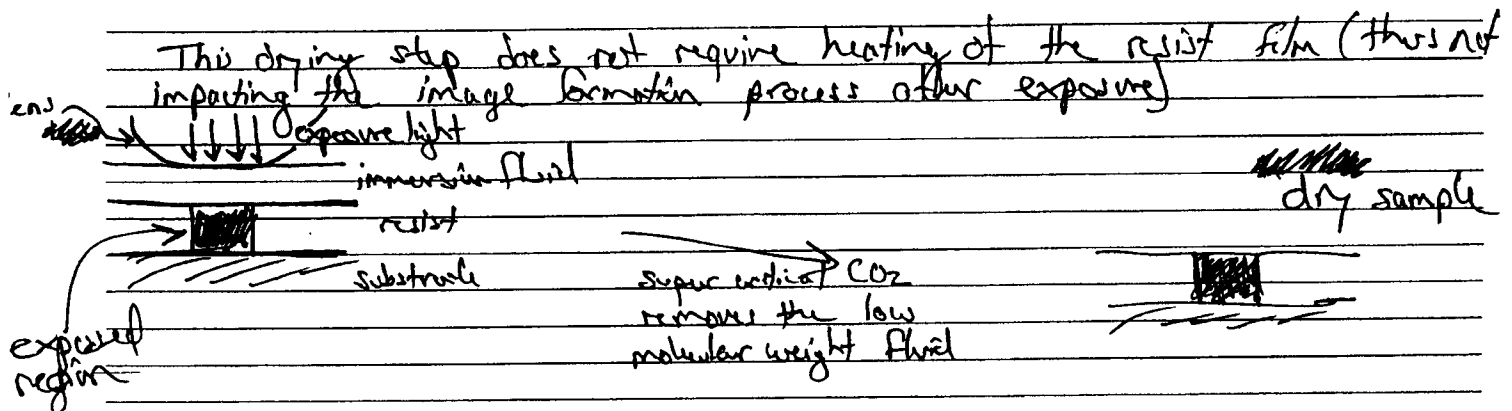 This drying step does not require heating of the resist film (thus not
impacting the image formation process after exposure)
lens
exposure light
immersion fluid
dry sample
resist
substrate
supercritical CO2
removes the low
molecular weight fluid
exposed
region